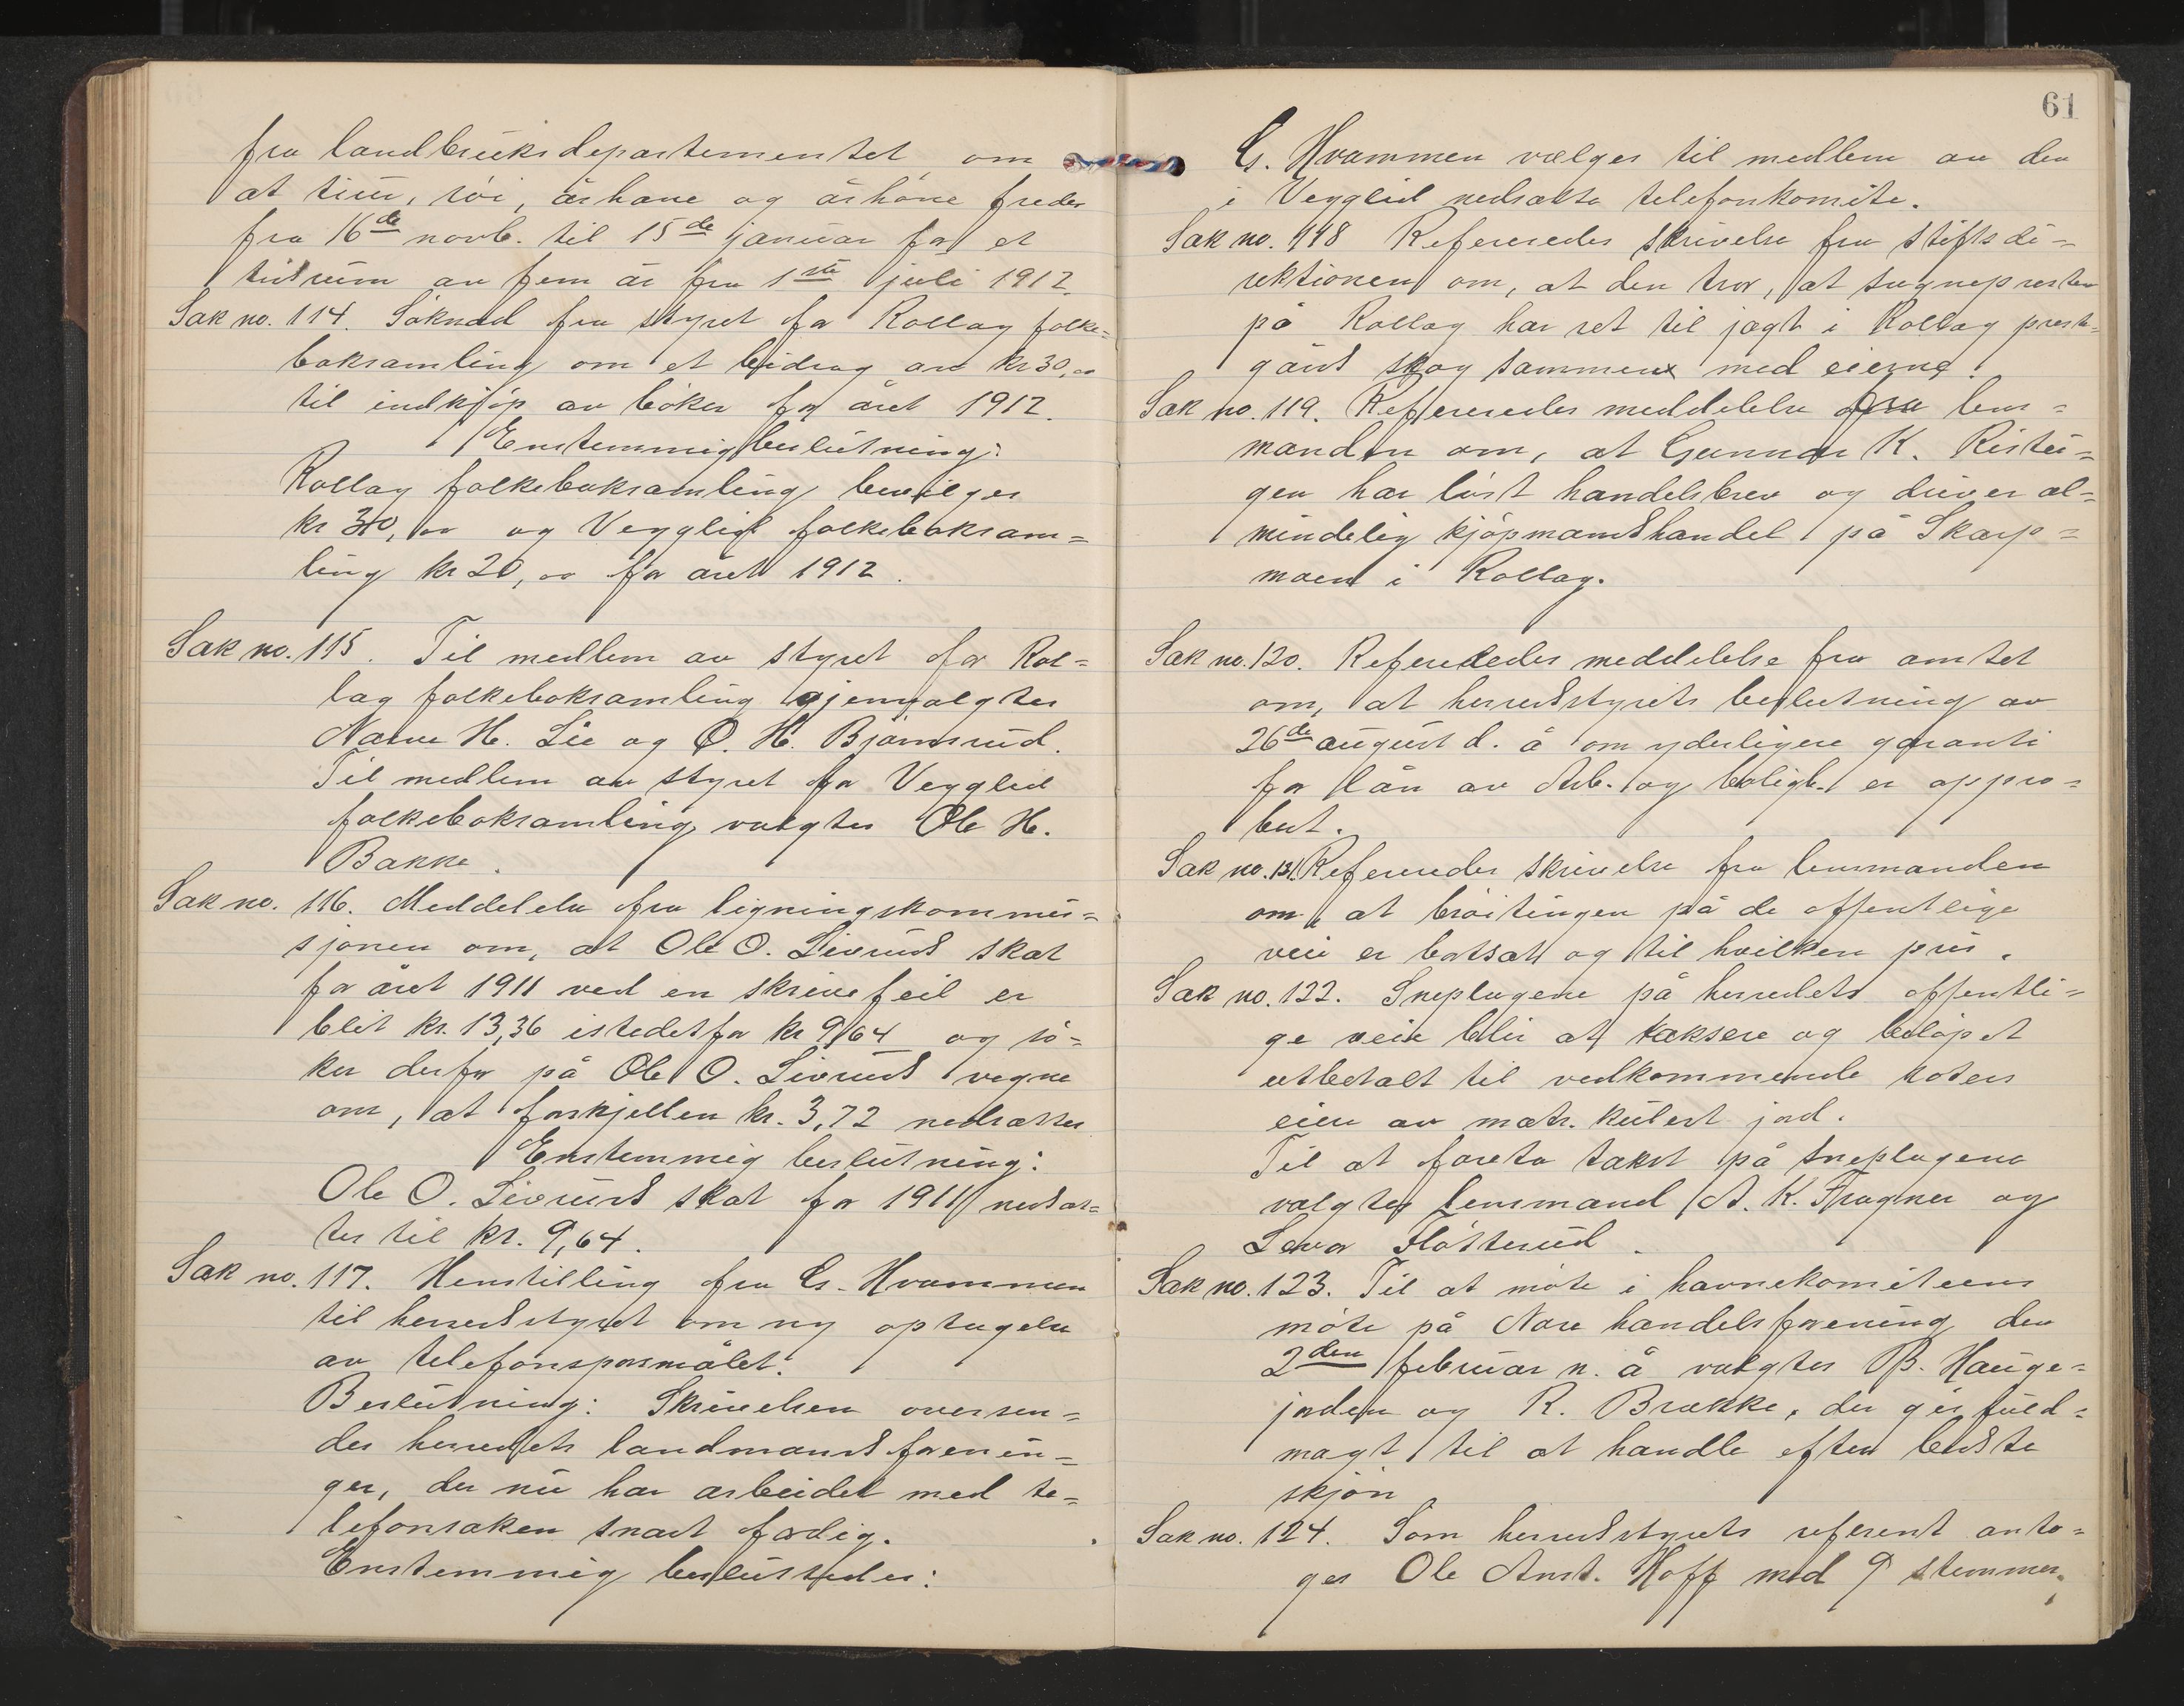 fra landbruksdepartementet om
at tiur, röi, århane og århöne freder
fra 16de novb. til 15de januar for et
tidsrum av fem år fra 1ste juli 1912.
Sak no. 114. Söknad fra styret for Rollag folke=
boksamling om et bidrag av kr 30,00
til indkjöp av böker for året 1912.
Enstemmig beslutning:
Rollag folkeboksamling bevilges
kr 30,00 og Vegglid folkeboksam=
ling kr 20,00 for året 1912.
Sak no. 115. Til medlem av styret for Rol=
lag folkeboksamling gjenvalgtes
Narve H. Lie og O. H. Bjömsrud.
Til medlem av styret for Vegglid
folkeboksamling valgtes Ole H.
Bakke.
Sak no. 116. Meddelelse fra ligningskommis=
sjonen om, at Ole O. Livruds skat
for året 1911 ved en skrivefeil er
blit kr. 13,36 istedetfor kr 9,64 og sö=
ker derfor på Ole O. Livruds vegne
om, at forskjellen kr. 3,72 nedsættes
Enstemmig beslutning:
Ole O. Livruds skat for 1911 nedsæt=
tes til kr. 9,64.
Sak no. 117. Henstilling fra Cs. Hvammen
til herredsstyret om ny optagelse
av telefonsporsmålet.
Beslutning: Skrivelsen oversen=
des herredets landmandsforenin=
ger, der nu har arbeidet med te=
lefonsaken snart færdig.
Enstemmig besluttedes:
61
Cs. Hvammen vælges til medlem av den
i Vegglid nedsatte telefonkomite.
Sak no. 118 Refereredes skrivelse fra stiftsdi=
rektionen om, at den tror, at sognepresten
på Rollag har ret til jagt i Rollag preste=
gårds skog sammen med eierne.
Sak no. 119. Refereredes meddelelse fra lens=
manden om, at Gunnar K. Ristei=
gen har löst handelsbrev og driver al=
mindelig kjöpmandshandel på Skarp=
moen i Rollag.
Sak no. 120. Refereredes meddelelse fra amtet
om, at herredsstyrets beslutning av
26de august d. å om yderligere garanti
for lån av Arb. og boligb. er appro=
bert.
Sak no. 121. Refereredes skrivelse fra lensmanden
om, at bröitingen på de offentlige
veie er bortsat og til hvilken pris.
Sak no. 122. Sneplogene på herredets offentli=
ge veie blir at taksere og belöpet
utbetalt til vedkommende rotes
eiere av matr. kulert jord.
Til at foreta takst på sneplogene
valgtes lensmand A. K. Fragner og
Levor Flötterud.
Sak no. 123. Til at möte i havnekomiteens
möte på Nore handelsforening den
2den februar n. å valgtes B. Hauge=
jorden og R. Brække, der gis fuld=
magt til at handle efter bedste
skjön
Sak no. 124. Som herredsstyrets referent anta=
ges Ole Anst. Hoff med 9 stemmer,